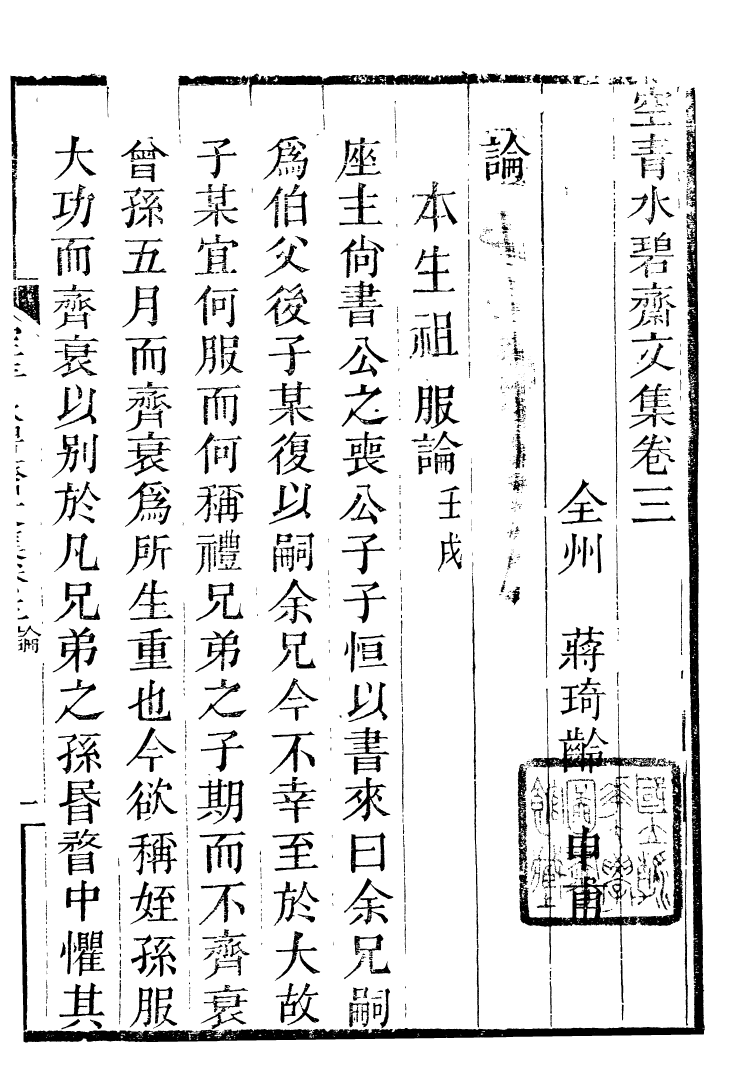 空青水碧齋文集卷三
全州　蔣琦齡　申甫
論
本生祖服論壬戌
座主尙書公之喪公子子恒以書來曰余兄嗣
爲伯父後子某復以嗣余兄今不幸至於大故
子某宜何服而何稱禮兄弟之子期而不齊衰
曾孫五月而齊衰爲所生重也今欲稱姪孫服
大功而齊衰以別於凡兄弟之孫昬瞀中懼其
論
一